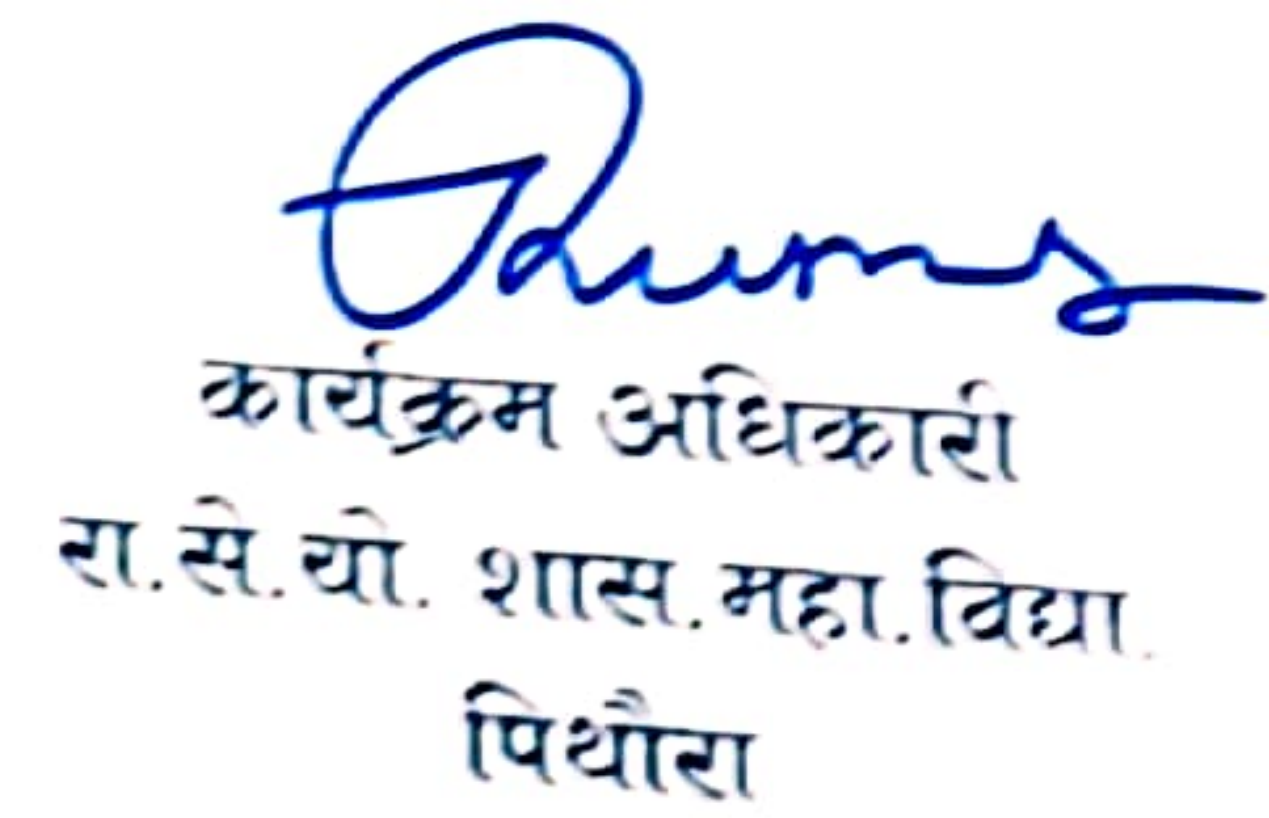 कार्यक्रम अधिकारी
रा.से.यो. शास.महा.विद्या.
पिथौरा